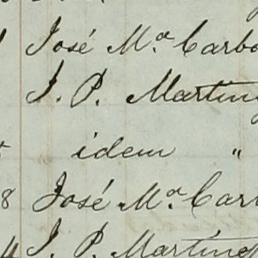 José Mª. Carbo
J. P. Marting
idem "
8 José Mª. Car
4 J. P. Martinez